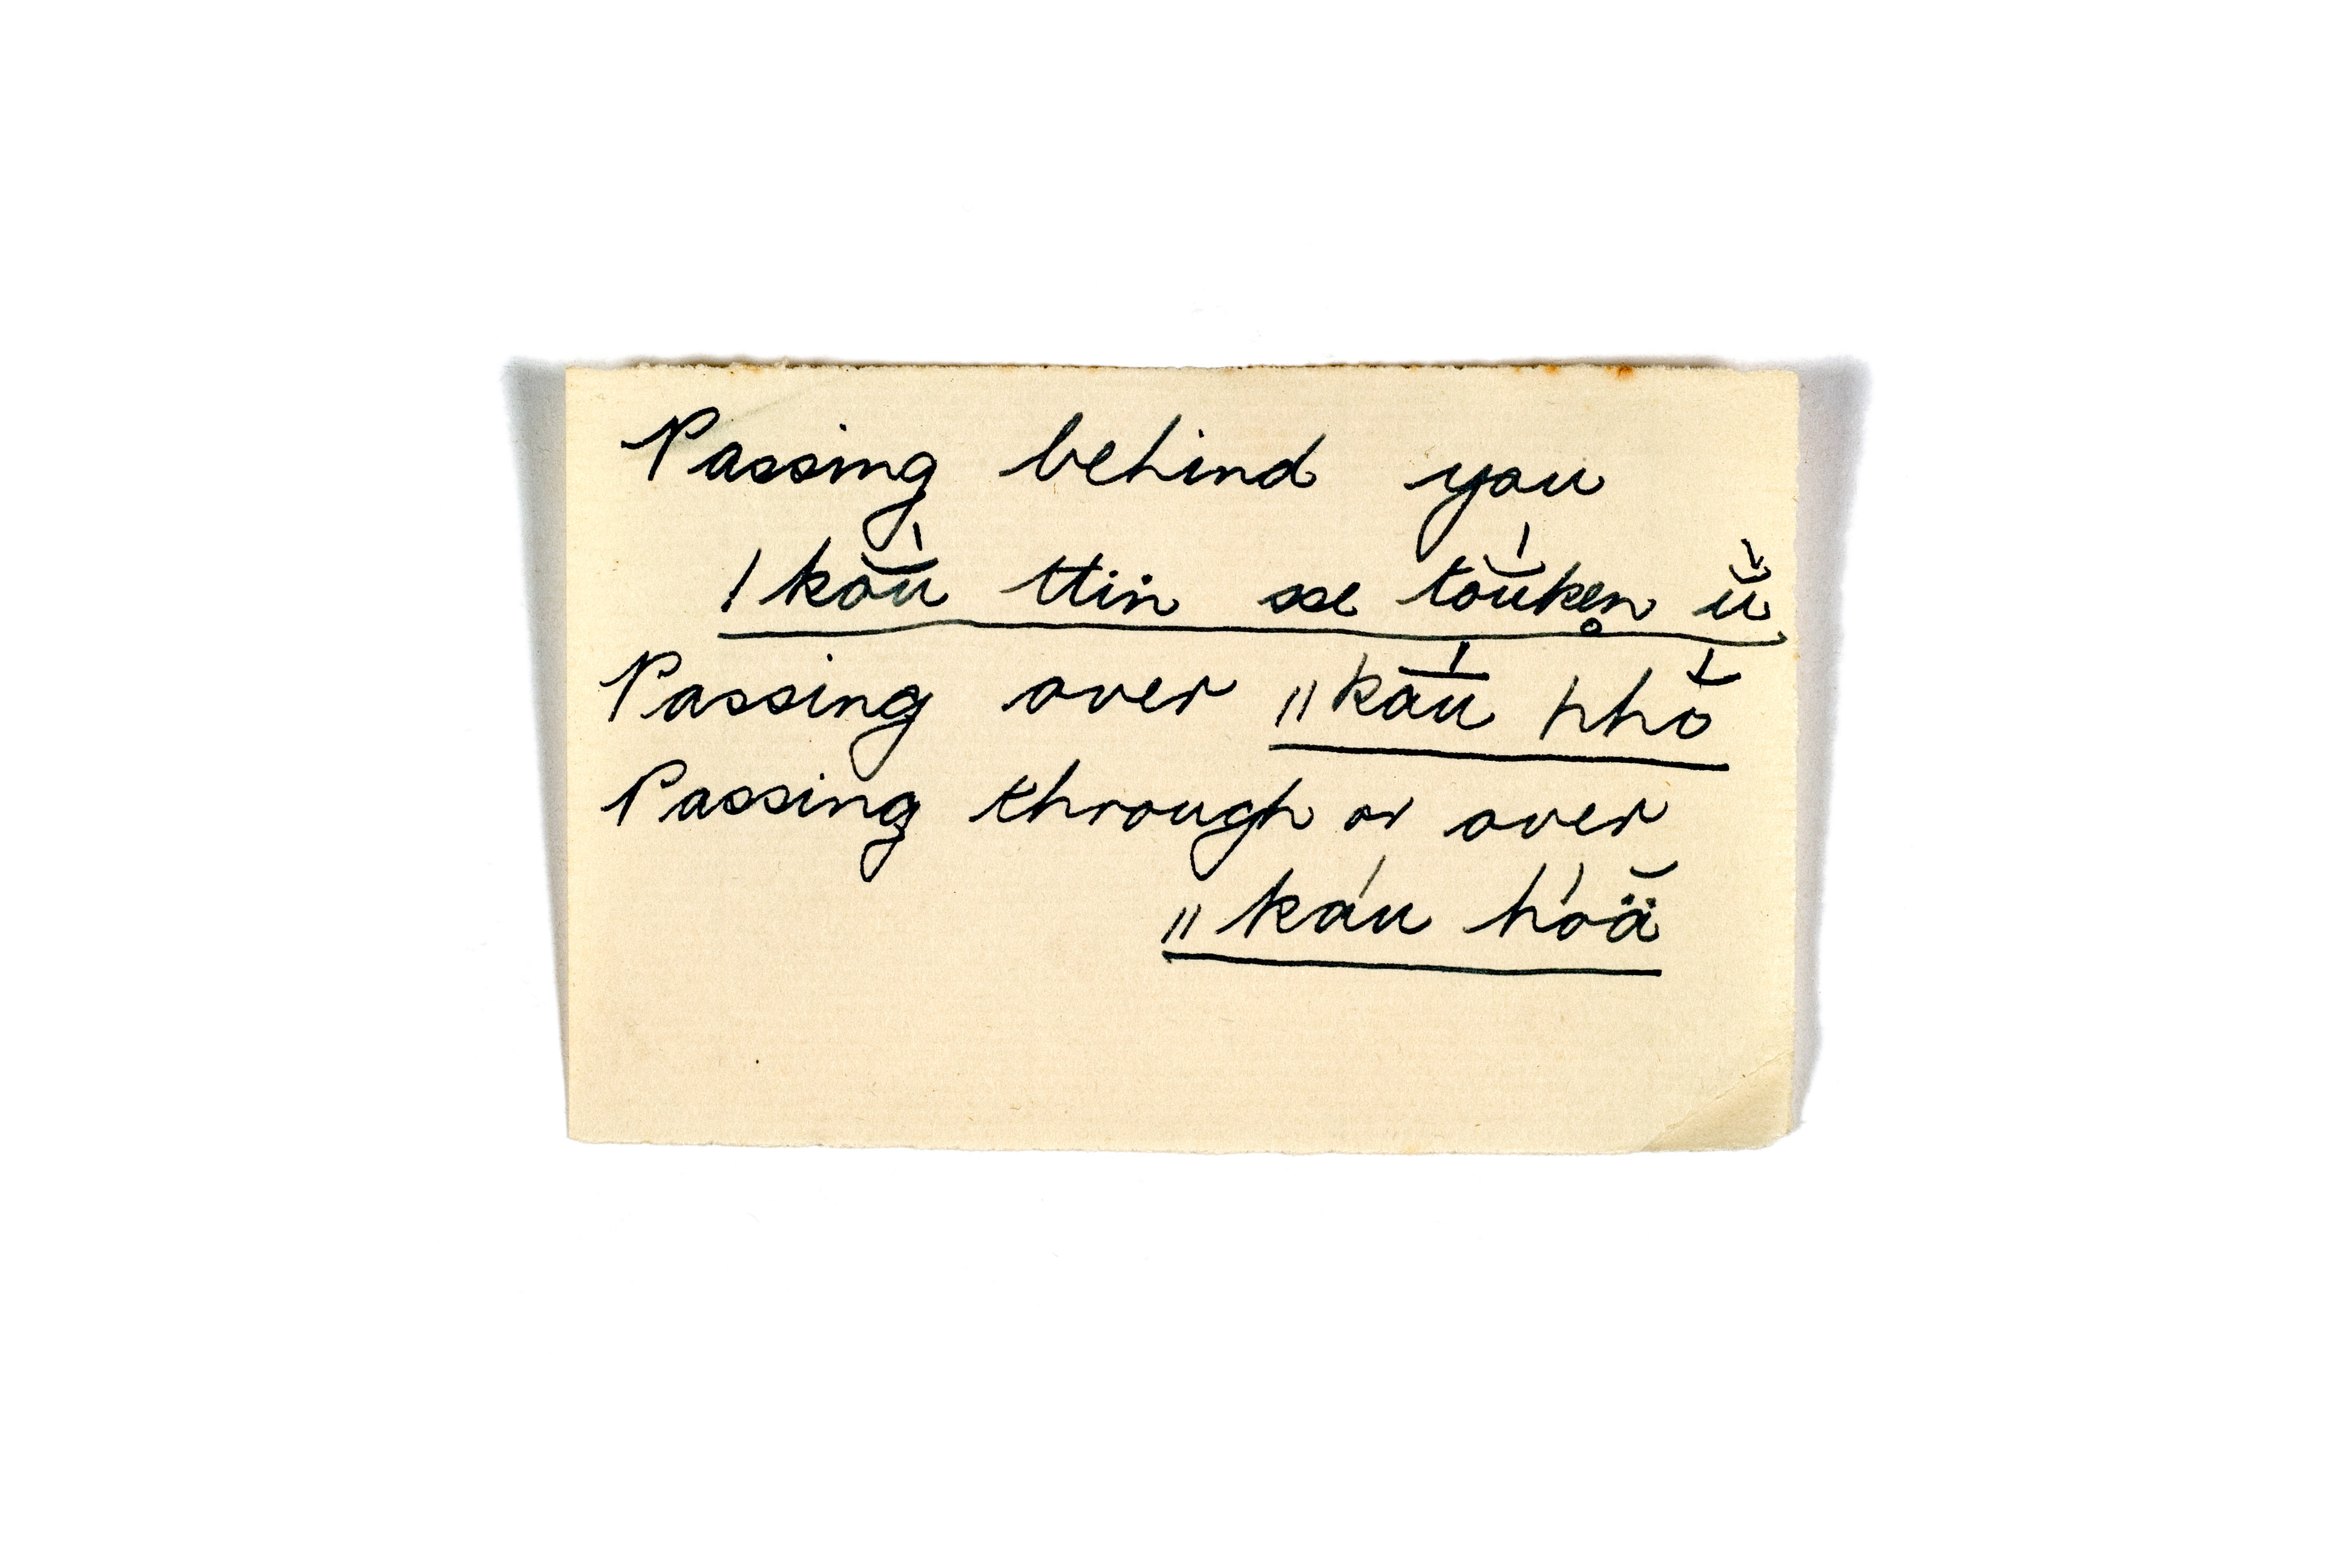 Passing behind you
ǀkŏ́ŭ ttiṅ sse tŏ́ŭke̥n ŭ̈́
Passing over ǁkā́ū hhŏ́
Passing through or over
ǁkáu h'óä̆